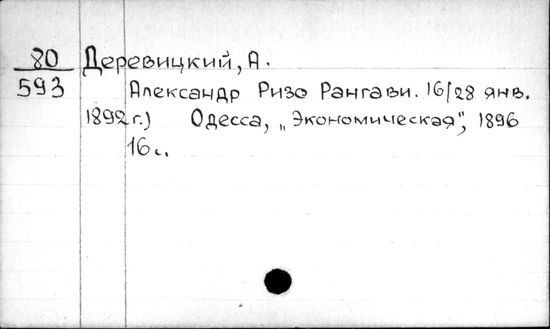 80 Деревицкий, А.
593 Александр Ризо Рангави. 16/28 янв.
1892 г.) Одесса, „Экономическая", 1896
16 с.